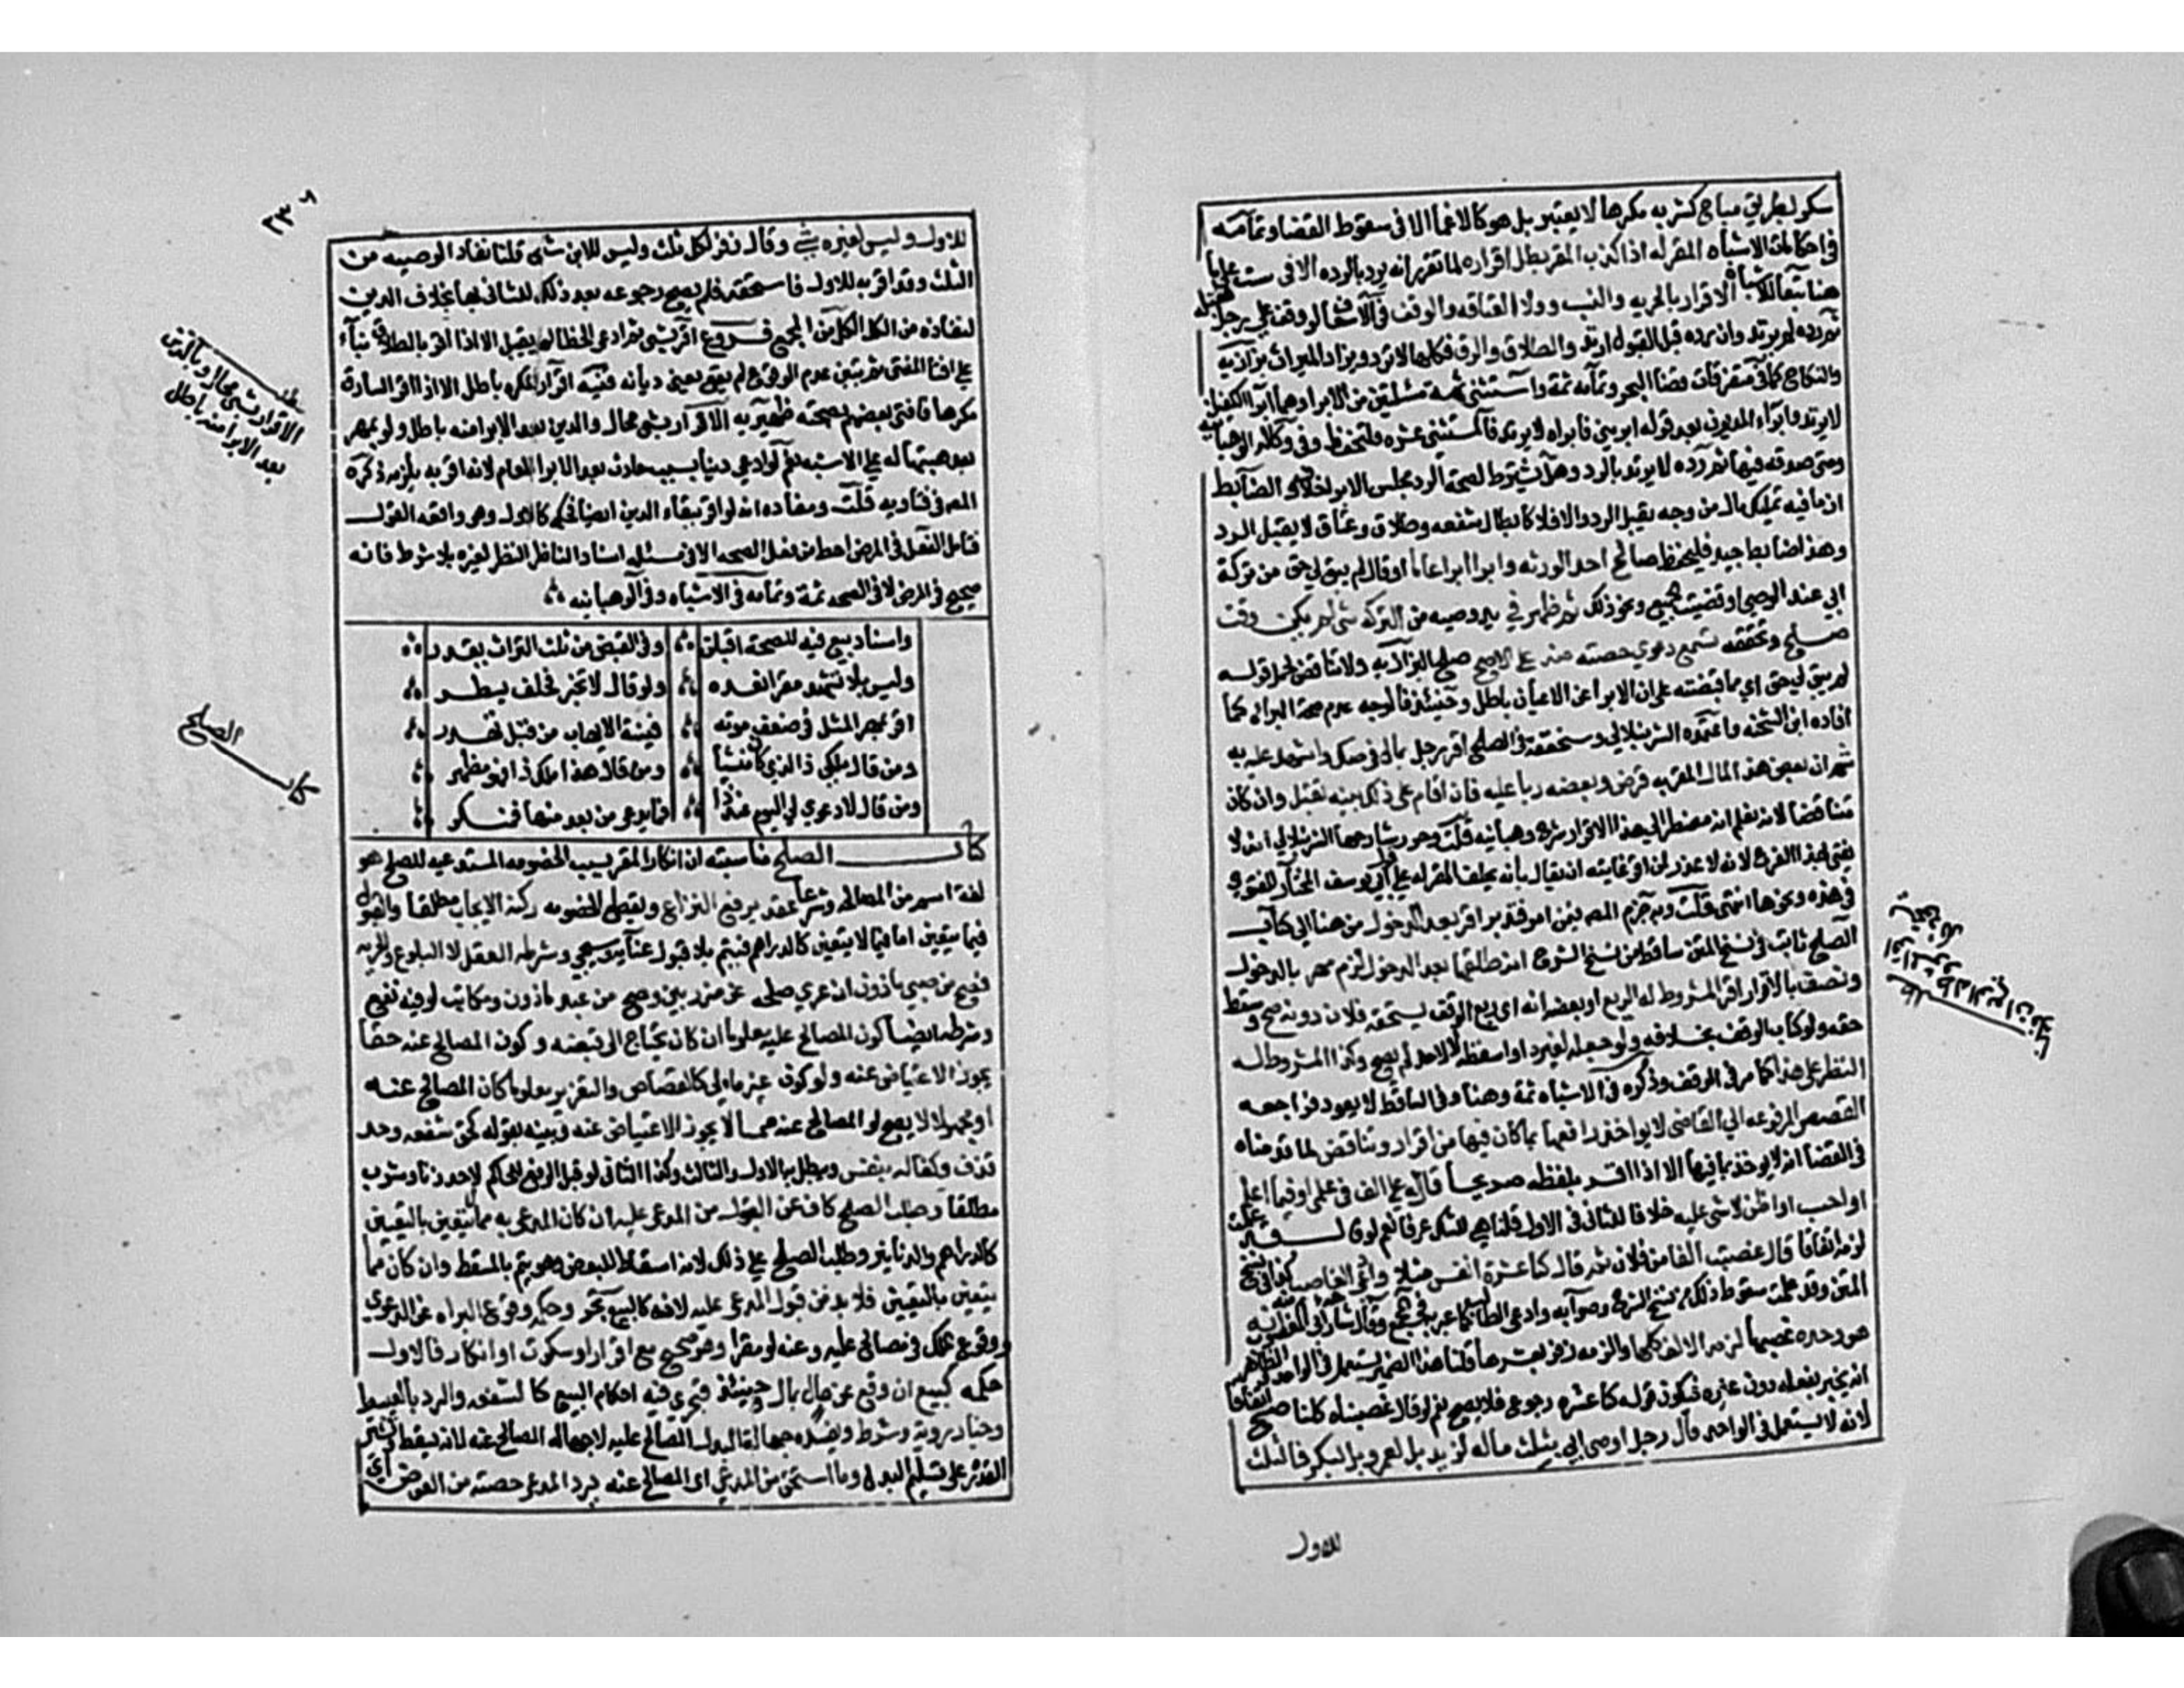 سكر بطريق مباح كشربه مكرها لا يعتبر بل هو كالاغما الا فى سقوط القضا وتمامه
فى احكامات الاشباه المقر له اذا كذب المقر بطل اقراره لما تقرر انه يرتد بالرد الا فى ست على ما
هنا تبعا للاشباه الاقرار بالحريه والنسب وولا العتاقه والوقف فى الاسعاف لو وقف على رجل فقبله
ثم رده لم يرتد وان رده قبل القبول ارتد والطلاق والرق فكلها لا ترتد ويزاد الميراث بزازيه
والنكاح كما فى متفرقات قضا البحر وتمامه ثمة واستثنى ثمة مسئلتين من الابرا وهما ابرا الكفيل
لا يرتد وابراء المديون بعد قوله ابريني فابراه لا يرتد فالمستثنى عشره فلتحفظ وفى وكالة الوهبانيه
ومتى صدقه فيها ثم رده لا يرتد بالرد وهل يشترط لصحة الرد مجلس الابرا خلاف الضابط
ان ما فيه تمليك مال من وجه يقبل الرد والا فلا كابطال شفعه وطلاق وعتاق لا يقبل الرد
وهذا ضابط جيد فليحفظ صالح احد الورثه وابرا ابراء عاما او قال لم يبق لي حق من تركة
ابي عند الوصي او قبضت الجميع ونحو ذلك ثم ظهر في يد وصيه من التركه شى لم يكن وقت
صلح وتحققه تسمع دعوي حصته منه على الاصح صلح البزازيه ولا تناقض لحمل قوله
لم يبق لي حق اي مما قبضته على ان الابرا عن الاعيان باطل وحينئذ فالوجه عدم صحة البراه كما
افاده ابن الشحنه واعتمده الشرنبلالي وسنحققه فى الصلح اقر رجل بمال فى صك واشهد عليه به
ثم ان بعض هذا المال المقر به قرض وبعضه ربا عليه فان اقام على ذلك بينه تقبل وان كان
متناقضا لانه نعلم انه مضطر الى هذا الاقرار شرح وهبانيه قلت وحرر شارحها الشرنبلالي انه لا
يفتى بهذا الفرع لانه لا عذر لمن اقر غايته ان يقال بأنه يحلف المقر له على قول ابي يوسف المختار للفتوي
فى هذه ونحوها انتهى قلت وبه جزم المصم فيمن اقر فتدبر اقر بعد الدخول من هنا الى كتاب
الصلح ثابت فى نسخ المتن ساقط من نسخ الشرح انه طلقها قبل الدخول لزم مهر بالدخول
ونصف بالاقرار اقر المشروط له الريع او بعضه انه اى ريع الوقف يستحقه فلان دونه صح وسقط
حقه ولو كتاب الوقف بخلافه ولو جعله لغيره او اسقطه لا لاحد لم يصح وكذا المشروط له
النظر على هذا كما مر فى الوقف وذكره فى الاشباه ثمة وهنا وفى الساقط لا يعود فراجعه
القصص المرفوعه الى القاضى لا يواخذ رافعها بما كان فيها من اقرار وتناقض لما قدمناه
فى القضا انه لا يوخذ بما فيها الا اذا اقر بلفظه صريحا قال له علي الف فى علمي او فيما اعلم
او احسب او اظن لا شى عليه خلافا للثانى فى الاول قلنا هي للشك عرفا نعم لو قال قد علمت
لزمه اتفاقا قال غصبت الفا من فلان ثم قال كنا عشرة انفس مثلا وادعى الغاصب كذا فى نسخ
المتن وقد علمت سقوط ذلك من نسخ الشرح وصوابه وادعى الطالب كما عبر به فى المجمع وقال شارحه اى المغصوب منه انه
هو وحده غصبها لزمه الالف كلها والزمه زفر بعشرها قلنا هذا الضمير يستعمل فى الواحد والظاهر
انه يخبر بفعله دون غيره فيكون قوله كنا عشره رجوعا فلا يصح نعم لو قال غصبناه كلنا صح اتفاقا
لانه لا يستعمل فى الواحد قال رجل اوصى ابي بثلث ماله لزيد بل لعمرو بل لبكر فالثلث
للاول
٢٣٦
للاول وليس لغيره شي وقال زفر لكل ثلث وليس للابن شى قلنا نفاذ الوصيه من
الثلث وقد اقر به للاول فاستحقه فلم يصح رجوعه بعد ذلك للثانى بخلاف الدين
لنفاذه من الكل الكل من المجمع فروع اقر بشى ثم ادعى الخطا لم يقبل الا اذا اقر بالطلاق بناء
على افتا المفتى ثم تبين عدم الوقوع لم يقع يعنى ديانه قنيه اقرار المكره باطل الا اذا اقر السارق
مكرها فافتى بعضهم بصحته ظهيريه الاقرار بشى محال والدين بعد الابرا منه باطل ولو بمهر
بعد هبتها له على الاشبه نعم لو ادعى دينا بسبب حادث بعد الابرا العام لانه اقر به يلزمه ذكره
المصم فى فتاويه قلت ومفاده انه لو اقر ببقاء الدين ايضا فحكمه كالاول وهى واقعه الفتوى
فتامل الفعل فى المرض احط من فعل الصحه الا فى مسئله اسناد الناظر النظر لغيره بلا شرط فانه
صحيح فى المرض لا فى الصحه ثمة وتمامه فى الاشباه وفى الوهبانيه
واسناد بيع فيه للصحة اقبلن وفى القبض من ثلث التراث يقدر
وليس بلا تشهد مقرا نعده ولو قال لا تخبر فخلف يسطر
اقر بمهر المثل فى ضعف موته فبينة الايهاب من قبل تهدر
ومن قال ملكي ذا لذي كان منشأ ومن قال هذا ملك ذا فهو مظهر
ومن قال لا دعوي لي اليوم عند ذا فما يدعى من بعد منها فمنكر
كتاب الصلح مناسبته ان انكار المقر سبب للخصومه المستدعيه للصلح هو
لغة اسم من المصالحه وشرعا عقد يرفع النزاع ويقطع الخصومه ركنه الايجاب مطلقا والقبول
فيما يتعين اما فيما لا يتعين كالدراهم فيتم بلا قبول عنايه وسيجي وشرطه العقل لا البلوغ والحريه
فصح من صبي ماذون ان عري صلحه عن ضرر بين وصح من عبد ماذون ومكاتب لو فيه نفع
وشرطه ايضا كون المصالح عليه معلوما ان كان يحتاج الى قبضه وكون المصالح عنه حقا
يجوز الاعتياض عنه ولو كان غير مال كالقصاص والتعزير معلوما كان المصالح عنه
او مجهولا لا يصح لو المصالح عنه مما لا يجوز الاعتياض عنه وبينه بقوله كحق شفعه وحد
قذف وكفاله بنفس ويبطل به الاول والثالث وكذا الثانى لو قبل الرفع للحاكم لا حد زنا وشرب
مطلقا وطلب الصلح كاف عن القبول من المدعى عليه ان كان المدعى به مما لا يتعين بالتعيين
كالدراهم والدنانير وطلب الصلح على ذلك لانه اسقاط للبعض وهو يتم بالمسقط وان كان مما
يتعين بالتعيين فلا بد من قبول المدعى عليه لانه كالبيع بحر وحكمه وقوع البراه عن الدعوي
ووقوع الملك فى مصالح عليه وعنه لو مقرا وهو صحيح مع اقرار او سكوت او انكار فالاول
حكمه كبيع ان وقع عن مال بمال وحينئذ فتجري فيه احكام البيع كالشفعه والرد بالعيب
وخيار رويه وشرط ويفسده جهالة البدل المصالح عليه لا جهاله المصالح عنه لانه يسقط وتشترط
القدره على تسليم البدل وما استحق من المدعى اى المصالح عنه يرد المدعى حصته من العوض اي
مطلب
الاقرار بشى محال وبالدين
بعد الابرا منه باطل
كتاب الصلح